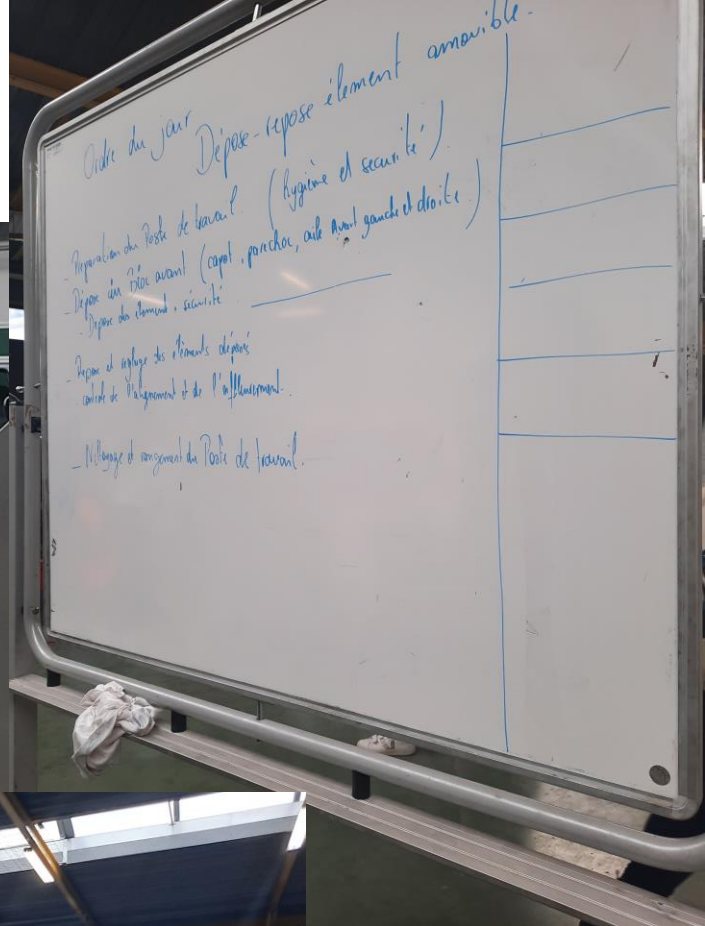 Ordre du jour Dépose-repose élement amovible.
- Préparation du Poste de travail. (hygiène et securité)
- Dépose du Bloc avant (capot, parechoc, aile Avant gauche et droite)
- Depose des element. sécurité
- Repose et réglage des éléments déposés
controle de l'alignement et de l'affleurement.
- Nettoyage et rangement du Poste de travail.